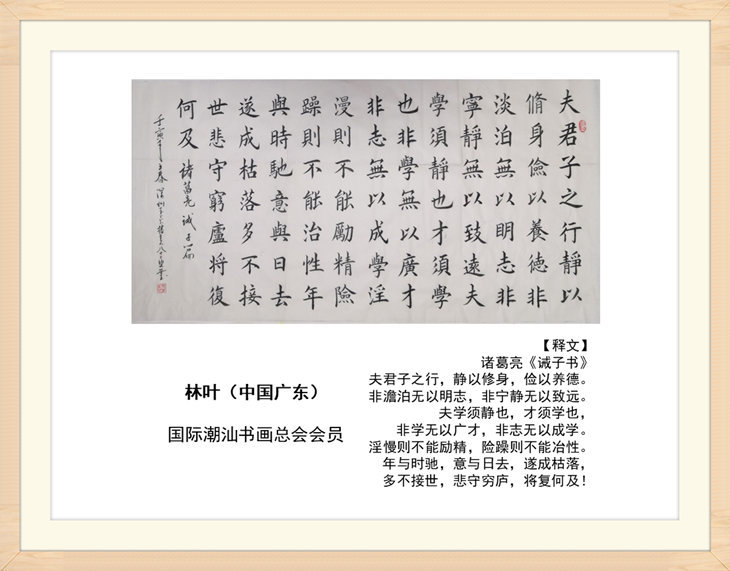 夫君子之行靜以
脩身儉以養德非
淡泊無以明志非
寧靜無以致遠夫
學須靜也才須學
也非學無以廣才
非志無以成學淫
漫則不能勵精險
躁則不能治性年
與時馳意與日去
遂成枯落多不接
世悲守窮廬將復
何及 諸葛亮誡子篇
壬寅年
【释文】
诸葛亮《诫子书》
夫君子之行，静以修身，俭以养德。
非澹泊无以明志，非宁静无以致远。
夫学须静也，才须学也，
非学无以广才，非志无以成学。
淫慢则不能励精，险躁则不能冶性。
年与时驰，意与日去，遂成枯落，
多不接世，悲守穷庐，将复何及！
林叶（中国广东）
国际潮汕书画总会会员